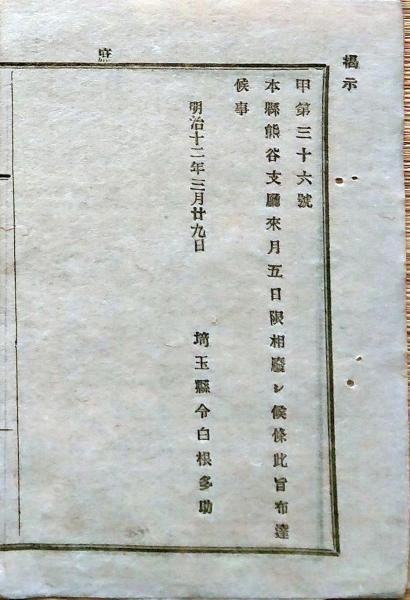 掲示
甲第三十六號
本縣熊谷支廳來月五日限相廢レ候條此旨布達
候事
明治十二年三月廿九日
埼玉縣令白根多助
庶